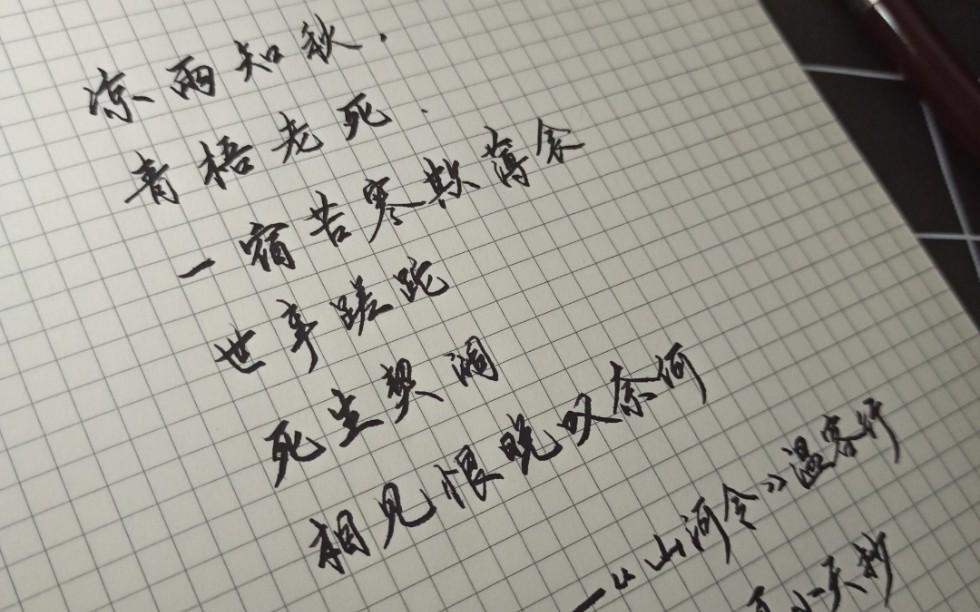 凉雨知秋.
青梧老死.
一宿苦寒欺薄衾
世事蹉跎
死生契阔
相见恨晚叹奈何
—《山河令》温客行
天抄